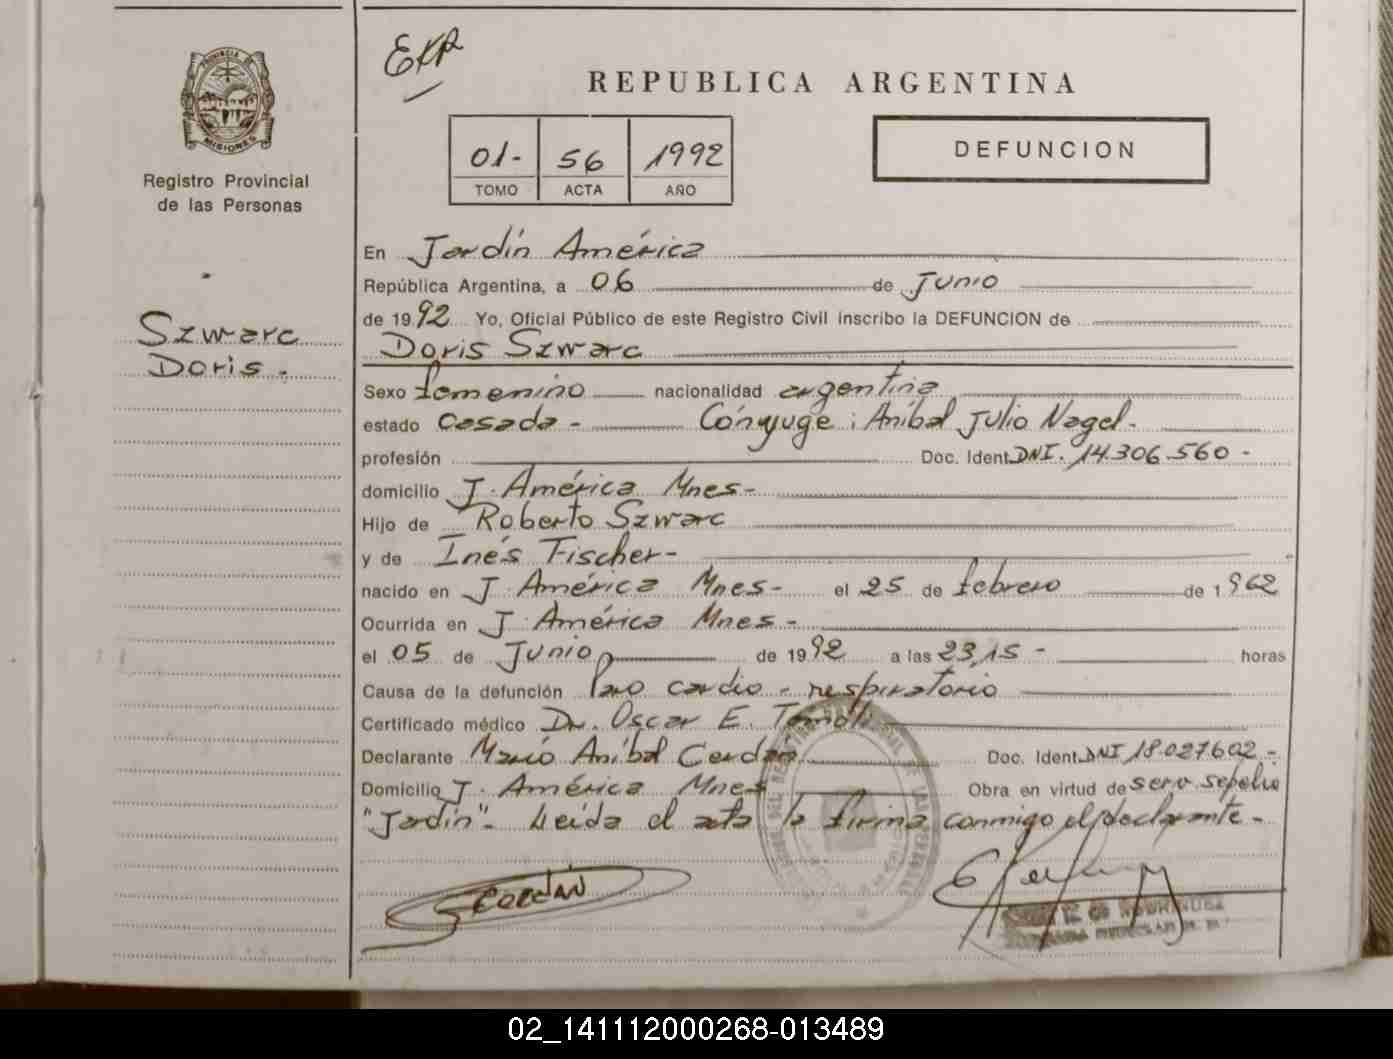 PROVINCIA DE
MISIONES
Registro Provincial
de las Personas
Szwarc
Doris.
EXP
REPUBLICA ARGENTINA
01- 56 1992
TOMO ACTA AÑO
DEFUNCION
En Jardín América
República Argentina, a 06 de Junio
de 1992 Yo, Oficial Público de este Registro Civil inscribo la DEFUNCION de
Doris Szwarc
Sexo femenino nacionalidad argentina
estado Casada - Cónyuge: Aníbal Julio Nagel.
profesión Doc. Ident. DNI. 14.306.560-
domicilio J. América Mnes-
Hijo de Roberto Szwarc
y de Inés Fischer-
nacido en J. América Mnes- el 25 de febrero de 1962
Ocurrida en J. América Mnes-
el 05 de Junio de 1992 a las 23,15 - horas
Causa de la defunción Paro cardio-respiratorio
Certificado médico Dr. Oscar E.
Declarante Mario Aníbal Cerdán Doc. Ident. DNI 18.027602-
Domicilio J. América Mnes Obra en virtud de serv. sepelio
"Jardín"- Leída el acta la firma conmigo el declarante-
CERDÁN
02_141112000268-013489